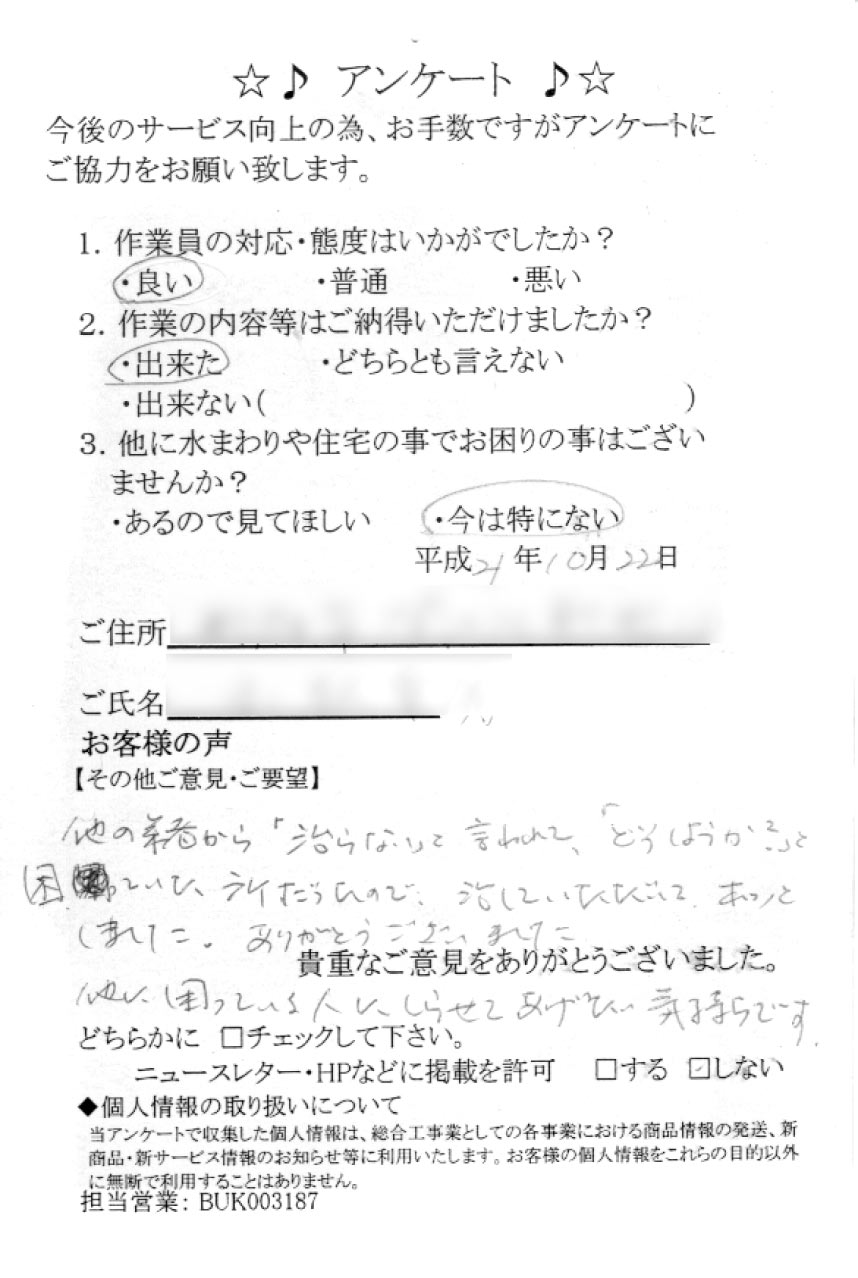 ☆♪ アンケート ♪☆
今後のサービス向上の為、お手数ですがアンケートに
ご協力をお願い致します。
1. 作業員の対応・態度はいかがでしたか?
・良い ・普通 ・悪い
2. 作業の内容等はご納得いただけましたか?
・出来た ・どちらとも言えない
・出来ない( )
3. 他に水まわりや住宅の事でお困りの事はござい
ませんか?
・あるので見てほしい ・今は特にない
平成21年10月22日
ご住所
ご氏名
お客様の声
【その他ご意見・ご要望】
他の業者から「治らない」と言われて、「どうしようか?」と
困っていた、所だったので、治していただいて、ホッと
しました。ありがとうございました
貴重なご意見をありがとうございました。
他に、困っている人に、しらせてあげたい気持ちです。
どちらかに □チェックして下さい。
ニュースレター・HPなどに掲載を許可 □する ☑しない
◆個人情報の取り扱いについて
当アンケートで収集した個人情報は、総合工事業としての各事業における商品情報の発送、新
商品・新サービス情報のお知らせ等に利用いたします。お客様の個人情報をこれらの目的以外
に無断で利用することはありません。
担当営業: BUK003187